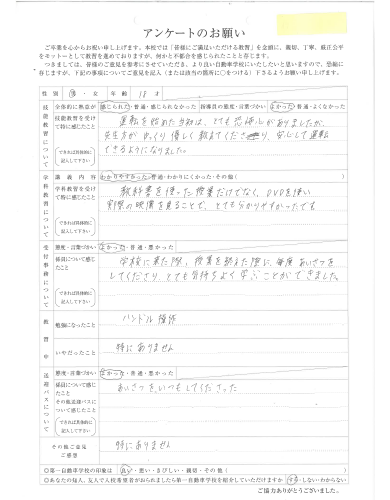 アンケートのお願い
ご卒業を心からお祝い申し上げます。本校では「皆様にご満足いただける教育」を念頭に、親切、丁寧、厳正公平
をモットーとして教育を進めておりますが、何かと不都合を感じられたことと存じます。
つきましては、皆様のご意見を参考にさせていただき、より良い自動車学校にいたしたいと思いますので、恐縮に
存じますが、下記の事項についてご意見を記入(または該当の箇所に○をつける)下さるようお願い申し上げます。
性別 男・女 年齢 18才
技能教育について
全体的な熱意が 感じられた・普通・感じられなかった 指導員の態度・言葉づかい よかった・普通・よくなかった
技能教育を受け
て特に感じたこと
できれば具体的に
記入して下さい
運転を始めた当初は、とても恐怖心がありましたが、
先生方がゆっくり優しく教えてくださり、安心して運転
できるようになりました。
学科教育について
講義内容 わかりやすかった・普通・わかりにくかった・その他( )
学科教育を受け
て特に感じたこと
できれば具体的に
記入して下さい
教科書を使った授業だけでなく、DVDを使い
実際の映像を見ることで、とても分かりやすかったです。
受付事務について
態度・言葉づかい よかった・普通・悪かった
係員について感じ
たこと
できれば具体的に
記入して下さい
学校に来た際、授業を終えた際に、毎度あいさつを
してくださり、とても気持ちよく学ぶことができました。
教習中
勉強になったこと
ハンドル操作
いやだったこと
特にありません
送迎バスについて
態度・言葉づかい よかった・普通・悪かった
係員について感じ
たこと
その他送迎バスに
ついて感じたこと
できれば具体的に
記入して下さい
あいさつをいつもしてくださった
その他ご意見
ご感想
特にありません
◎第一自動車学校の印象は 良い・悪い・きびしい・親切・その他( )
◎あなたの知人、友人で入校希望者がおられましたら第一自動車学校を紹介していただけますか する・しない・わからない
ご協力ありがとうございました。